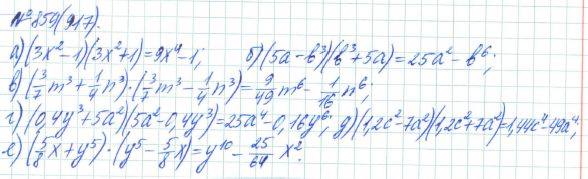 № 859(917).
а) (3x² - 1)(3x² + 1) = 9x⁴ - 1; б) (5a - b³)(b³ + 5a) = 25a² - b⁶;
в) (3/7 m³ + 1/4 n³) · (3/7 m³ - 1/4 n³) = 9/49 m⁶ - 1/16 n⁶;
г) (0,4y³ + 5a²)(5a² - 0,4y³) = 25a⁴ - 0,16y⁶; д) (1,2c² - 7a²)(1,2c² + 7a²) = 1,44c⁴ - 49a⁴.
е) (5/8 x + y⁵) · (y⁵ - 5/8 x) = y¹⁰ - 25/64 x².